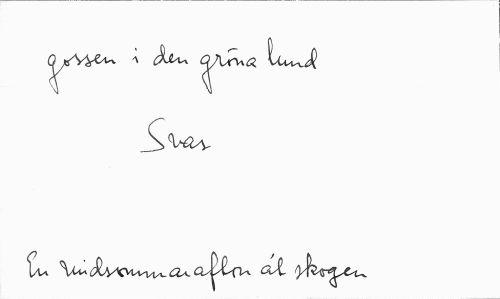 gossen i den gröna lund
Svar
En midsommarafton åt skogen